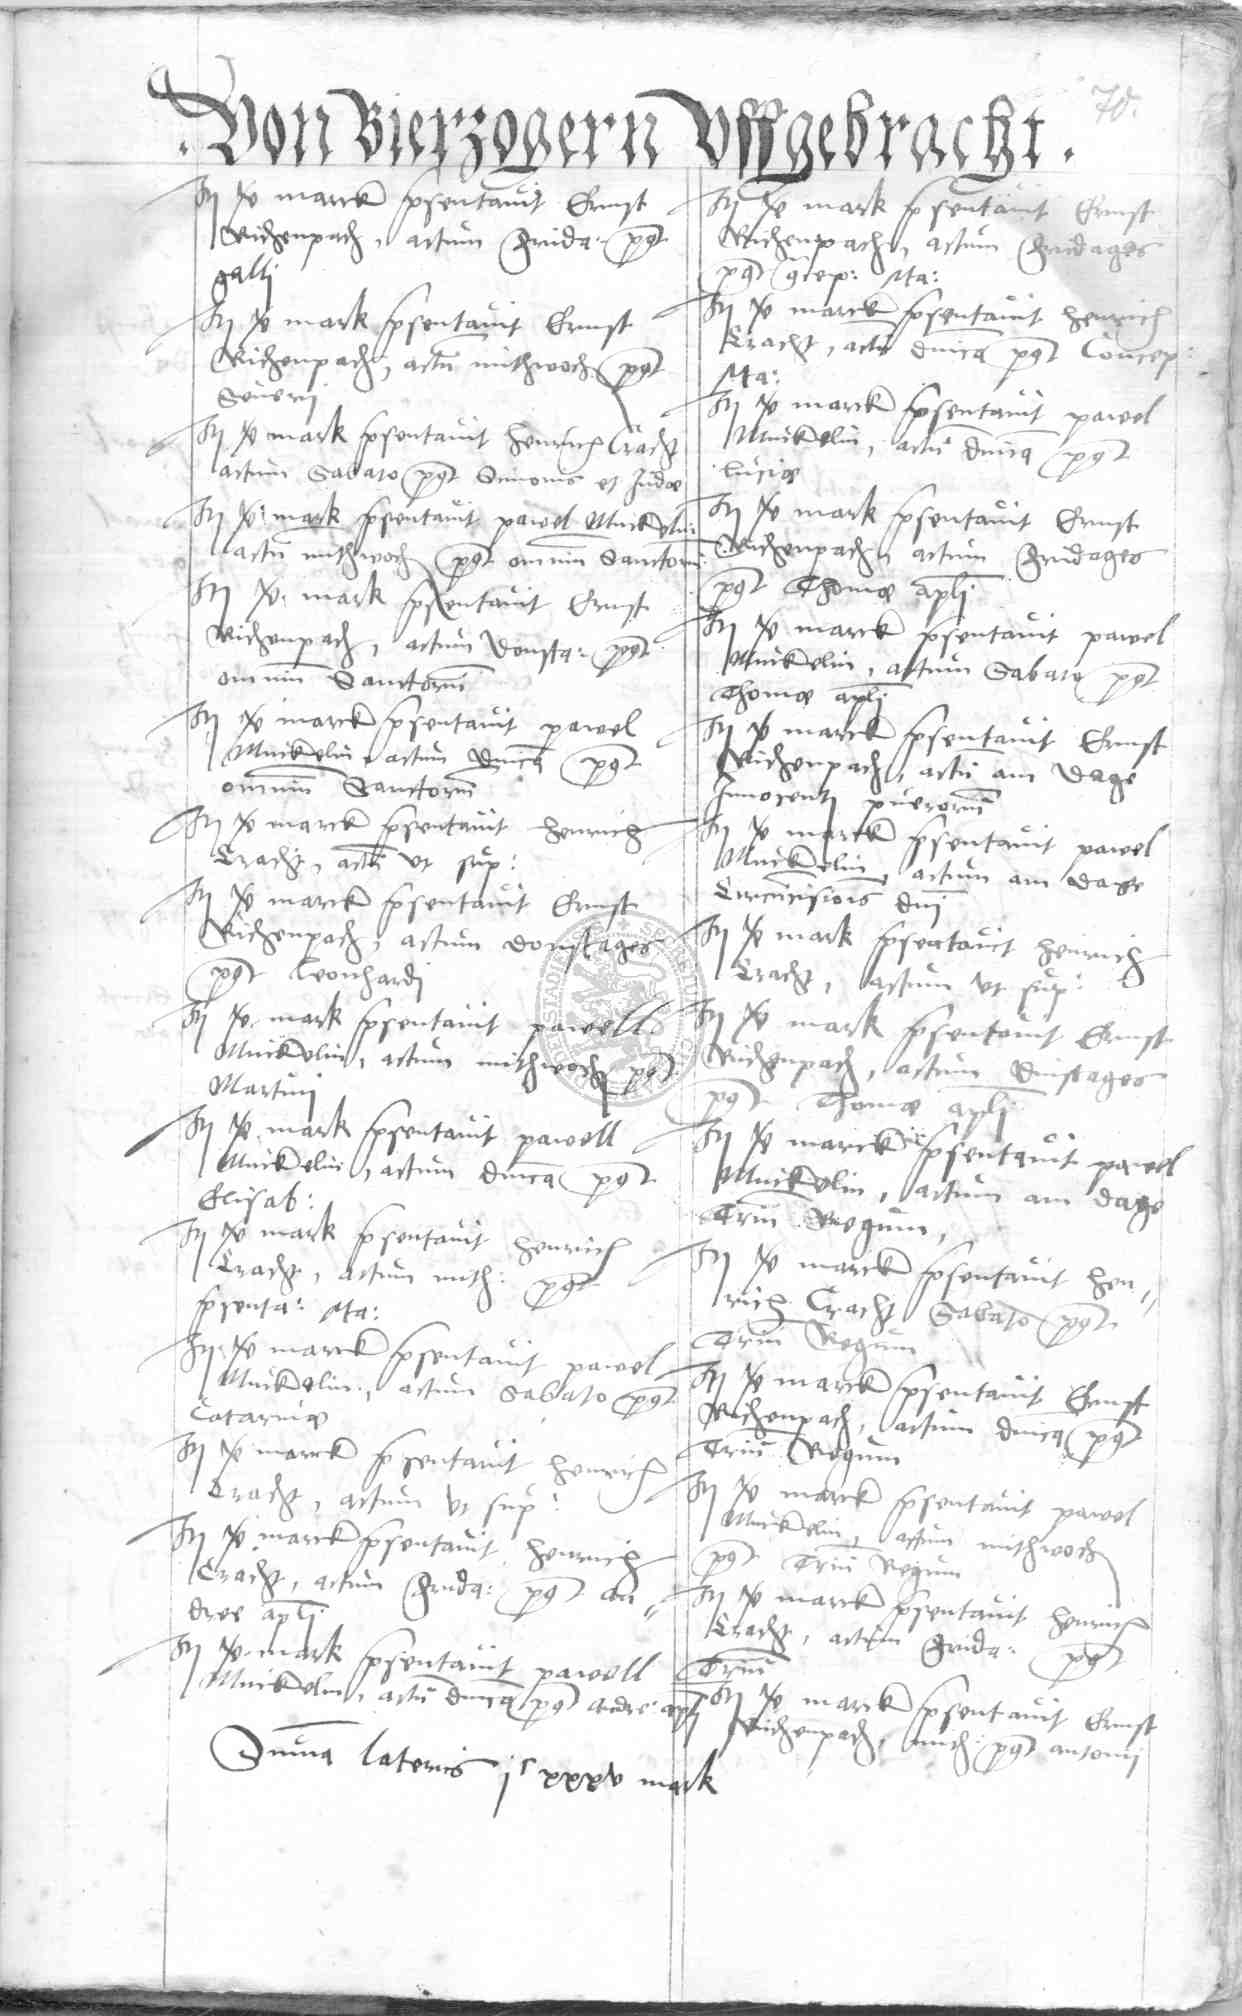 70.
. Von Bierzogern Uffgebracht .
It xv marck psentavit Ernst
Richenpach, actum Frida: post
galli
It xv mark psentavit Ernst
Richenpach, actu mithwoch post
Severi
It xv mark psentavit Henrich Cracht
actum Sabato post Simonis et Jude
It xv mark psentavit pawel Muckelin
actu mithwoch post omnium Sanctorum
It xv mark psentavit Ernst
Richenpach, actum Donsta: post
omnium Sanctorum
It xv marck psentavit pawel
Muckelin, actum dnica post
omnium Sanctorum
It xv marck psentavit Henrich
Cracht, actu ut sup:
It xv marck psentavit Ernst
Richenpach, actum donstages
post Leonhardi
It xv mark psentavit pawell
Muckelin, actum mithwoch post
Martini
It xv mark psentavit pawell
Muckelin, actum dnica post
Elisab:
It xv mark psentavit Henrich
Cracht, actum mith: post
psenta: Ma:
It xv marck psentavit pawel
Muckelin, actum Sabato post
Catarine
It xv marck psentavit Henrich
Cracht, actum ut sup:
It xv marck psentavit Henrich
Cracht, actum Frida: post An„
dree apli
It xv mark psentavit pawell
Muckelin, actu dnica post Andre: apli
Suma lateris jc xxxv mark
It xv mark psentavit Ernst
Richenpach, actum Fridages
post Concep: Ma:
It xv marck psentavit Henrich
Cracht, actu dnica post Concep:
Ma:
It xv marck psentavit pawel
Muckelin, actu dnica post
Lucie
It xv mark psentavit Ernst
Richenpach, actum Fridages
post Thome apli
It xv marck psentavit pawel
Muckelin, actum Sabato post
Thome apli
It xv marck psentavit Ernst
Richenpach, actu am Dage
Innocenti puerorum
It xv marck psentavit pawel
Muckelin, actum am dage
Circumcisionis dni
It xv mark psentavit Heinrich
Cracht, actum ut sup:
It xv mark psentavit Ernst
Richenpach, actum Dinstages
post Thome apli
It xv marck psentavit pawel
Muckelin, actum am dage
Triu Regum,
It xv marck psentavit Hen„
rich Cracht Sabato post
Triu Regum
It xv marck psentavit Ernst
Richenpach, actum dnica post
Triu Regum
It xv marck psentavit pawel
Muckelin, actum mithwoch
post Triu Regum
It xv marck psentavit Henrich
Cracht, actum Frida: post
Trium
It xv marck psentavit Ernst
Richenpach, mith: post antonii